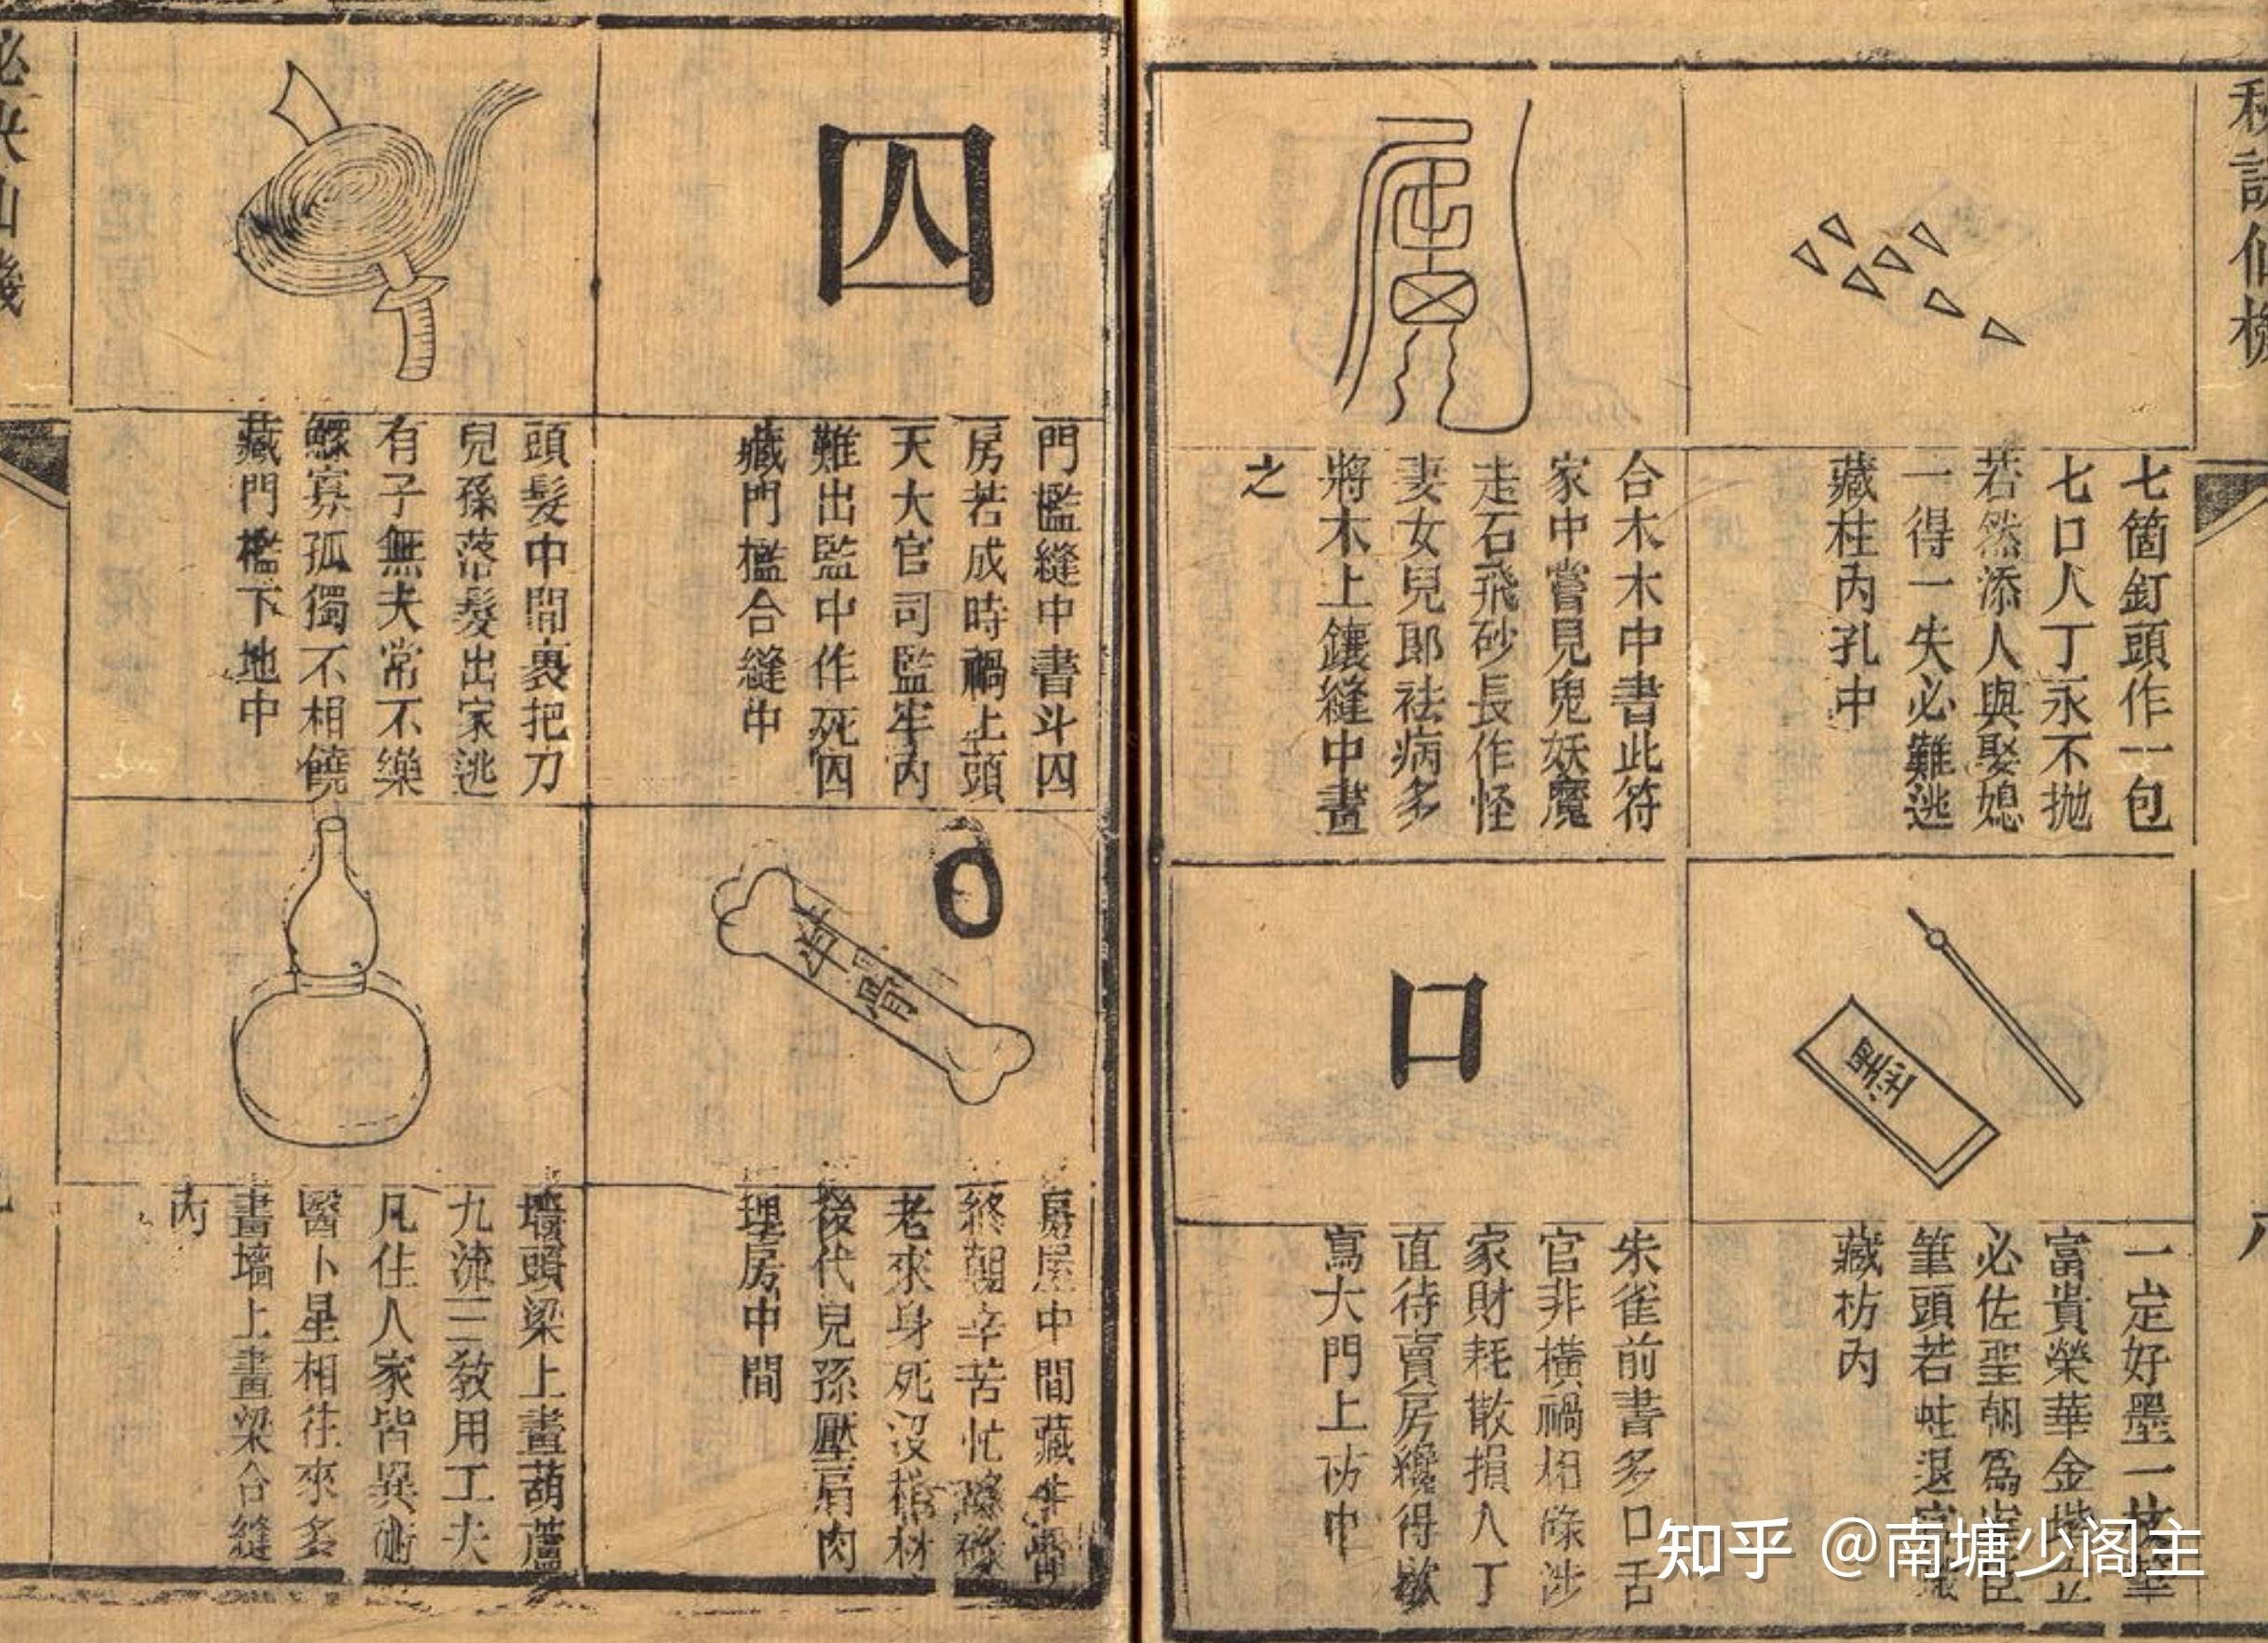 七箇釘頭作一包
七口人丁永不抛
若然添人與娶媳
一得一失必難逃
藏柱内孔中
合木木中書此符
家中嘗見鬼妖魔
走石飛砂長作怪
妻女兒郎袪病多
將木上鑲縫中畫
之
墨
一定好墨一枝筆
富貴榮華金堦立
必佐聖朝爲宰臣
筆頭若蛀退官
藏枋内
口
朱雀前書多口舌
官非橫禍相條涉
家財耗散損人丁
直待賣房纔得歇
寫大門上枋中
囚
門檻縫中書斗囚
房若成時禍上頭
天大官司監牢内
難出監中作死囚
藏門檻合縫中
頭髮中間裹把刀
兒孫落髮出家逃
有子無夫常不樂
鰥寡孤獨不相饒
藏門檻下地中
牛骨
房屋中間藏牛骨
終朝辛苦忙碌碌
老來身死沒棺材
後代兒孫壓肩肉
埋房中間
墻頭梁上畫葫蘆
九流三教用工夫
凡住人家皆異術
醫卜星相往來多
畫墻上畫梁合縫
内
知乎 @南塘少阁主